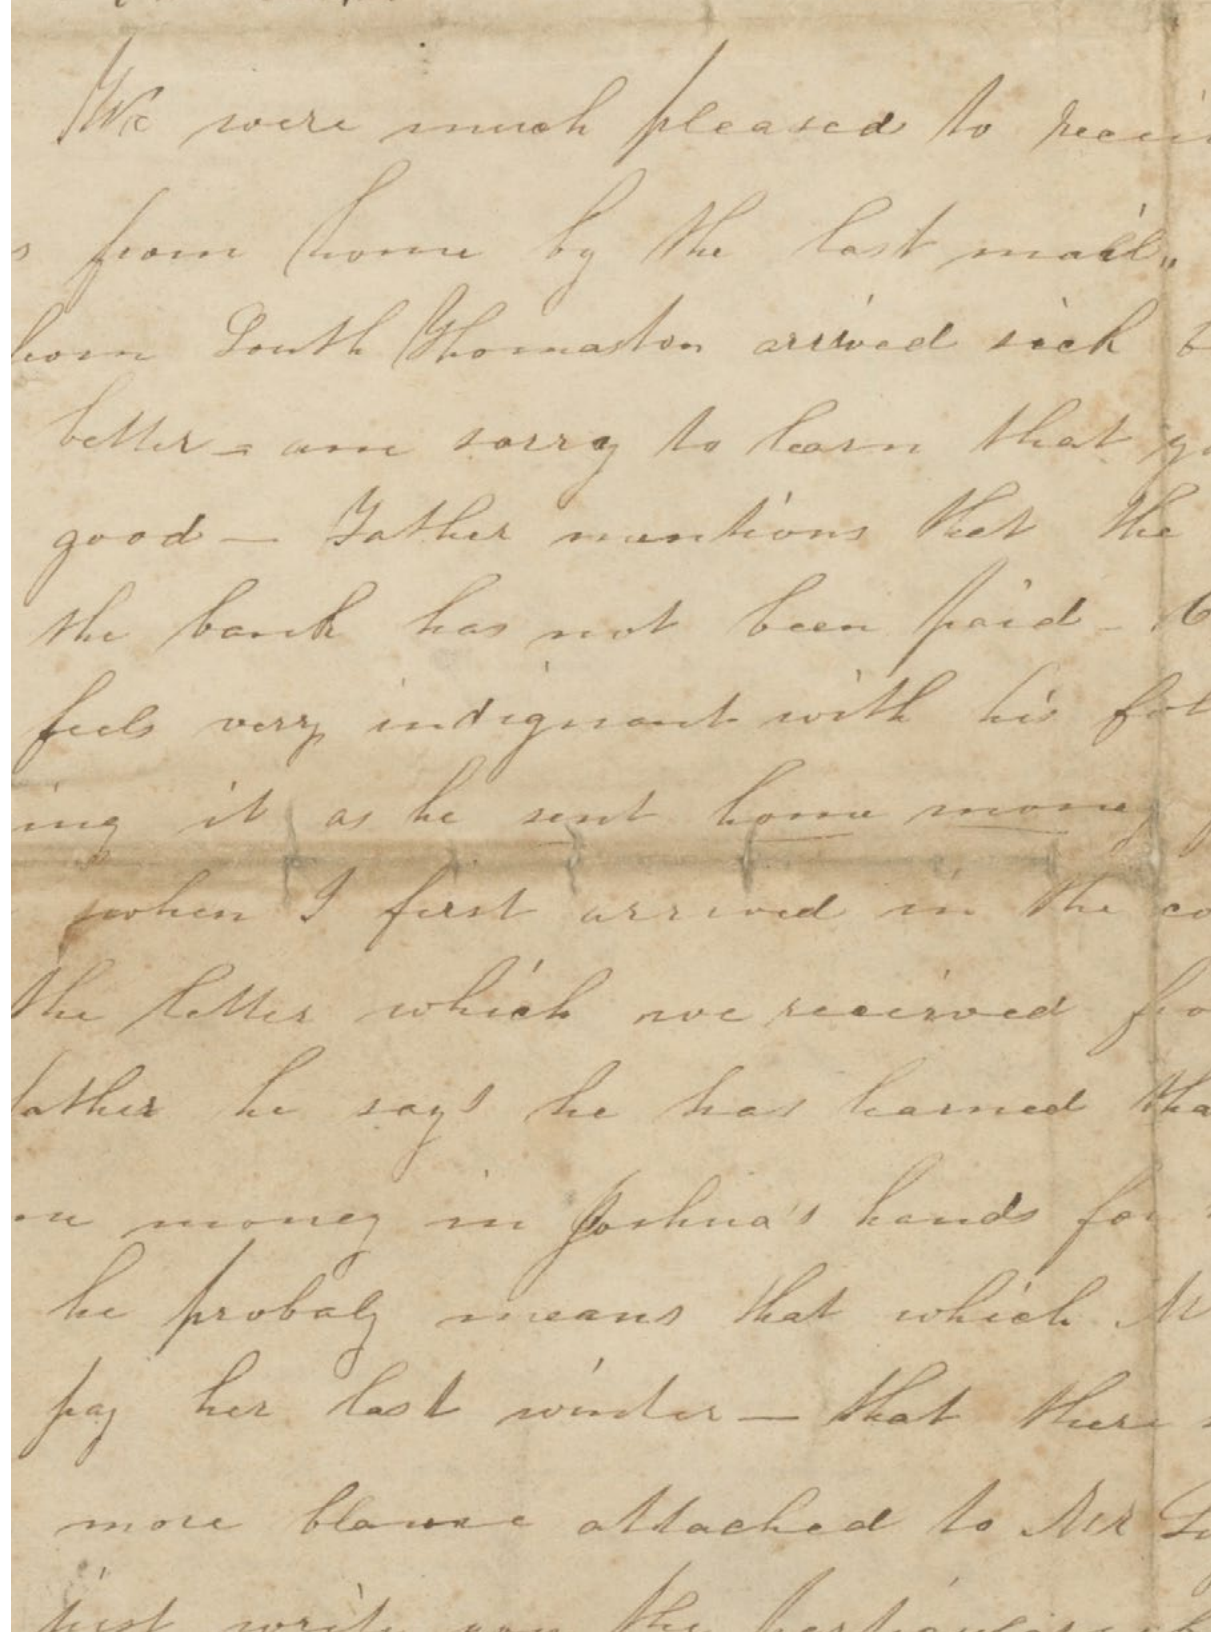 We were much pleased to recei
s from home by the last mail,,
from South Thomaston arrived sick b
better - am sorry to learn that yo
good — Father mentions that the
the bank has not been paid -
feels very indignant with his fat
ing it as he sent home money
when I first arrived in the co
the letter which we received fro
father he says he has learned tha
money in Joshua's hands for
he probaly means that which M
pay her last winter — that there
more blame attached to Mr
just write you the particulars